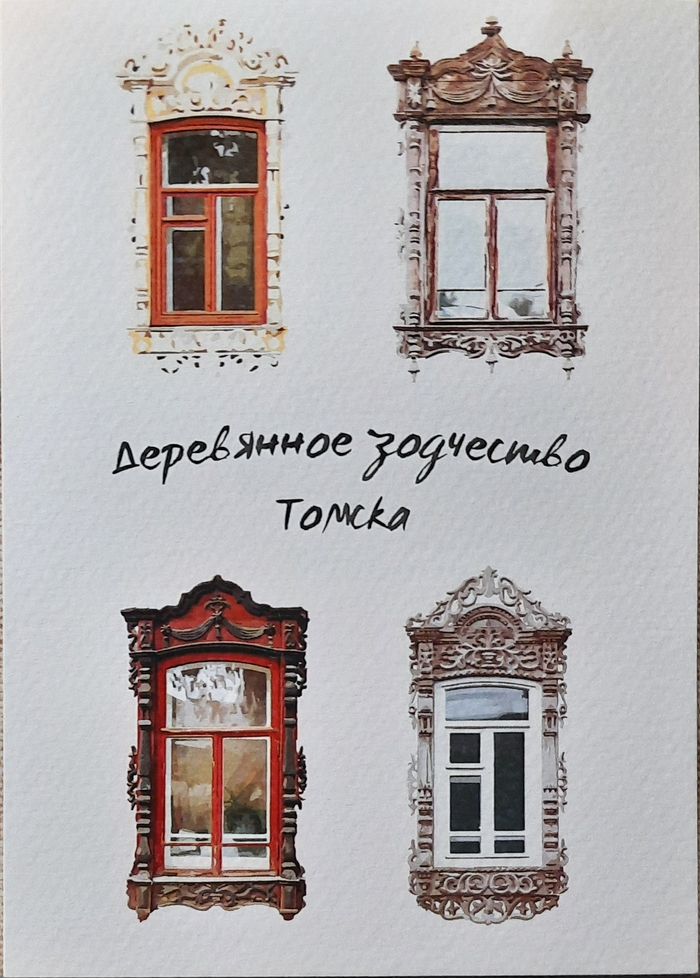 Деревянное зодчество
Томска